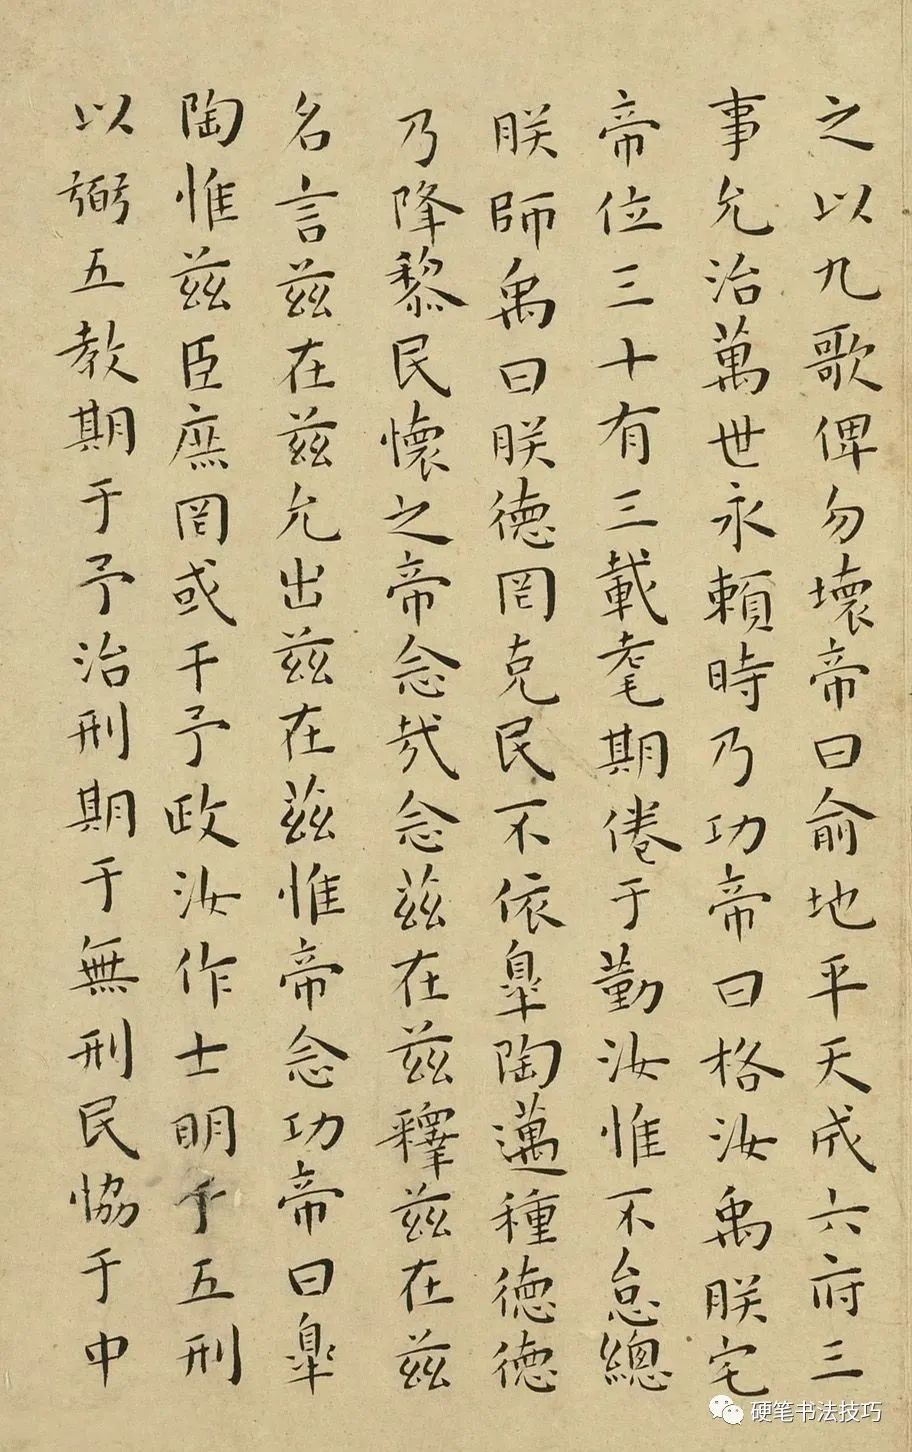 之以九歌俾勿壞帝曰俞地平天成六府三
事允治萬世永頼時乃功帝曰格汝禹朕宅
帝位三十有三載耄期倦于勤汝惟不怠總
朕師禹曰朕德罔克民不依皐陶邁種德德
乃降黎民懷之帝念哉念兹在兹釋兹在兹
名言兹在兹允出兹在兹惟帝念功帝曰皐
陶惟兹臣庶罔或干予政汝作士明于五刑
以弼五教期于予治刑期于無刑民恊于中
硬笔书法技巧